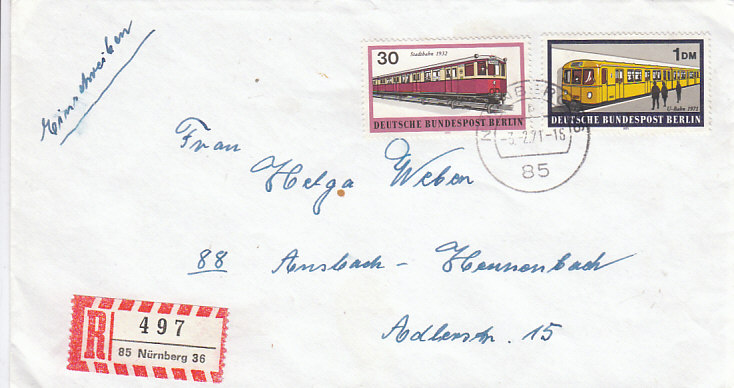 Einschreiben
30
Stadtbahn 1932
DEUTSCHE BUNDESPOST BERLIN
1 DM
U-Bahn 1971
DEUTSCHE BUNDESPOST BERLIN
-3.-2.71-16
85
Frau
Helga Weber
88 Ansbach - Hennenbach
Adlerstr. 15
R
497
85 Nürnberg 36